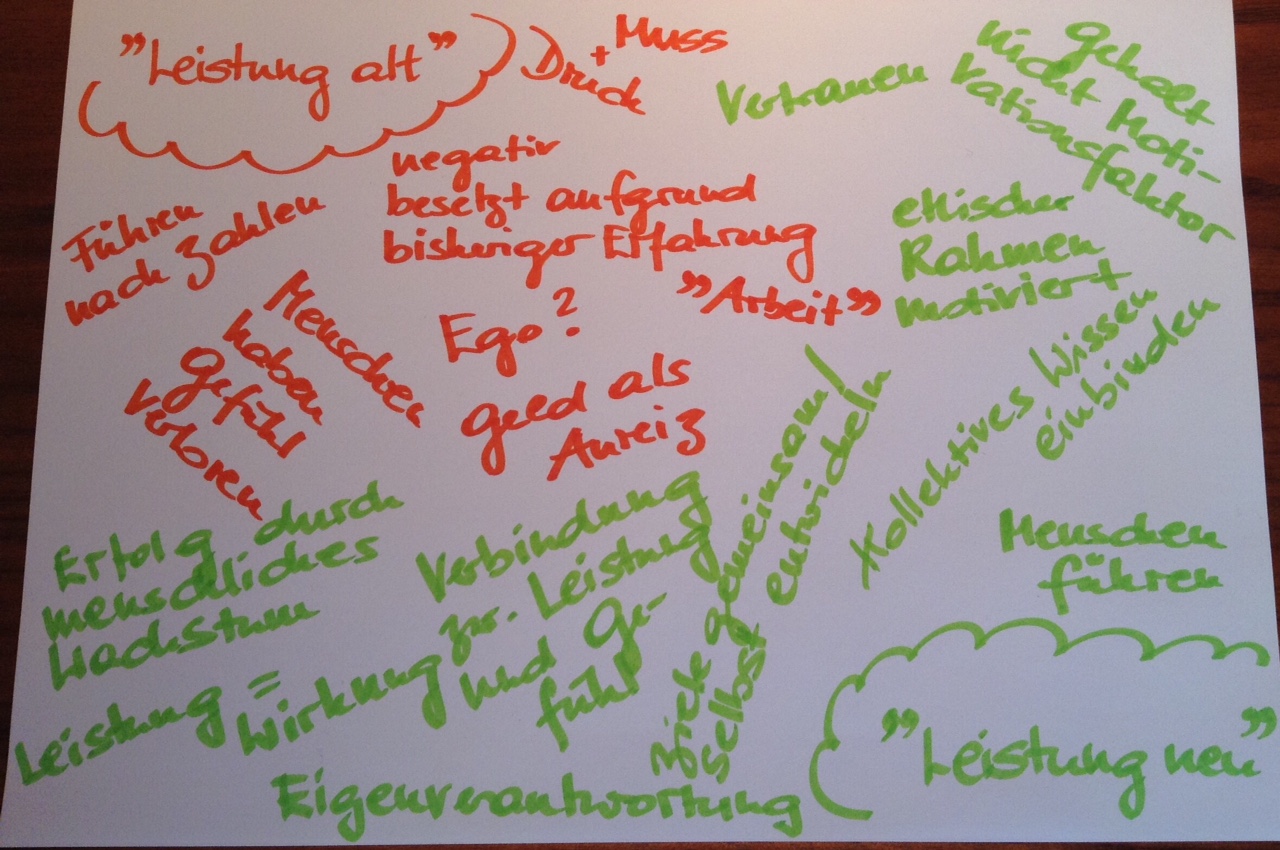 "Leistung alt"
Muss
+
Druck
Vertrauen
Gehalt
nicht Moti-
vationsfaktor
negativ
besetzt aufgrund
bisheriger Erfahrung
"Arbeit"
Führen
nach Zahlen
ethischer
Rahmen
motiviert
Menschen
haben
Gefühl
verloren
Ego?
Geld als
Anreiz
Kollektives Wissen
einbinden
Ziele gemeinsam/
selbst entwickeln
Erfolg durch
menschliches
Wachstum
Verbindung
zw. Leistung
und Ge-
fühl
Menschen
führen
Leistung =
Wirkung
Eigenverantwortung
"Leistung neu"